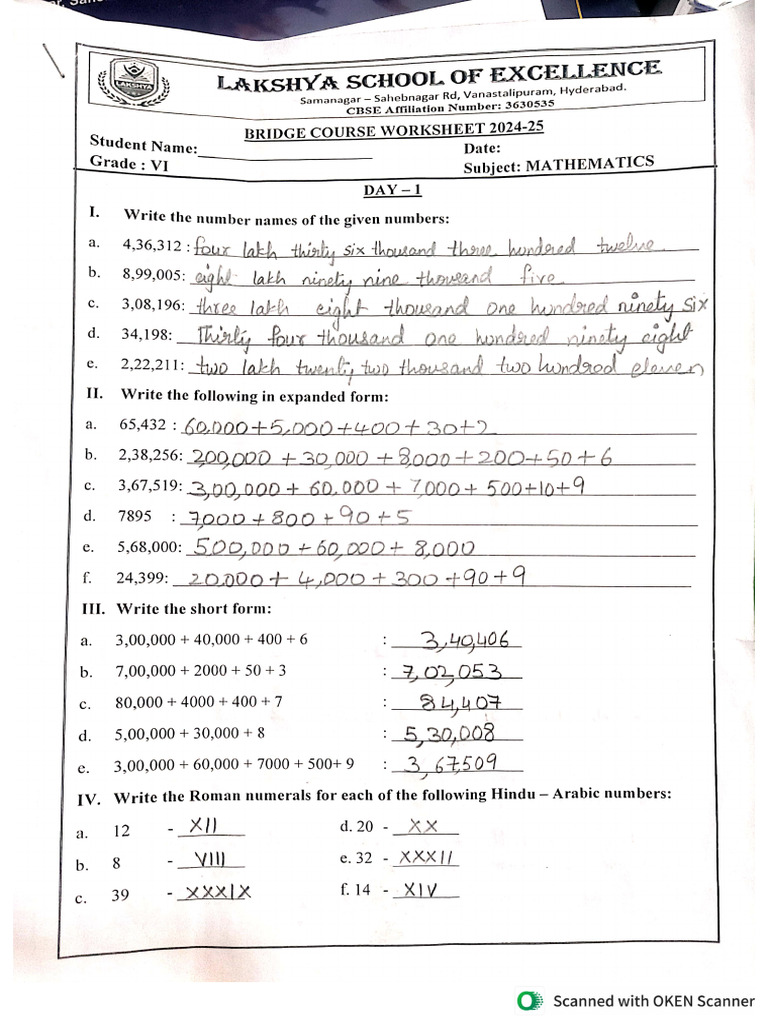 LAKSHYA
LAKSHYA SCHOOL OF EXCELLENCE
Samanagar – Sahebnagar Rd, Vanastalipuram, Hyderabad.
CBSE Affiliation Number: 3630535
BRIDGE COURSE WORKSHEET 2024-25
Student Name: Date:
Grade : VI Subject: MATHEMATICS
DAY – 1
I. Write the number names of the given numbers:
a. 4,36,312 : four lakh thirty six thousand three hundred twelve
b. 8,99,005: eight lakh ninety nine thousand five
c. 3,08,196: three lakh eight thousand one hundred ninety six
d. 34,198: Thirly four thousand one hundred ninety eight
e. 2,22,211: two lakh twenty two thousand two hundred eleven
II. Write the following in expanded form:
a. 65,432 : 60,000+5,000+400+30+2
b. 2,38,256: 200,000 + 30,000 + 8,000 + 200+50+6
c. 3,67,519: 3,00,000+ 60,000 + 7,000 + 500+10+9
d. 7895 : 7,000+800+90+5
e. 5,68,000: 500,000+60,000+ 8,000
f. 24,399: 20,000+ 4,000 + 300 +90+9
III. Write the short form:
a. 3,00,000 + 40,000 + 400 + 6 : 3,40,406
b. 7,00,000 + 2000 + 50 + 3 : 7,02,053
c. 80,000 + 4000 + 400 + 7 : 84,407
d. 5,00,000 + 30,000 + 8 : 5,30,008
e. 3,00,000 + 60,000 + 7000 + 500+ 9 : 3,67,509
IV. Write the Roman numerals for each of the following Hindu – Arabic numbers:
a. 12 - XII d. 20 - XX
b. 8 - VIII e. 32 - XXXII
c. 39 - XXXIX f. 14 - XIV
Scanned with OKEN Scanner